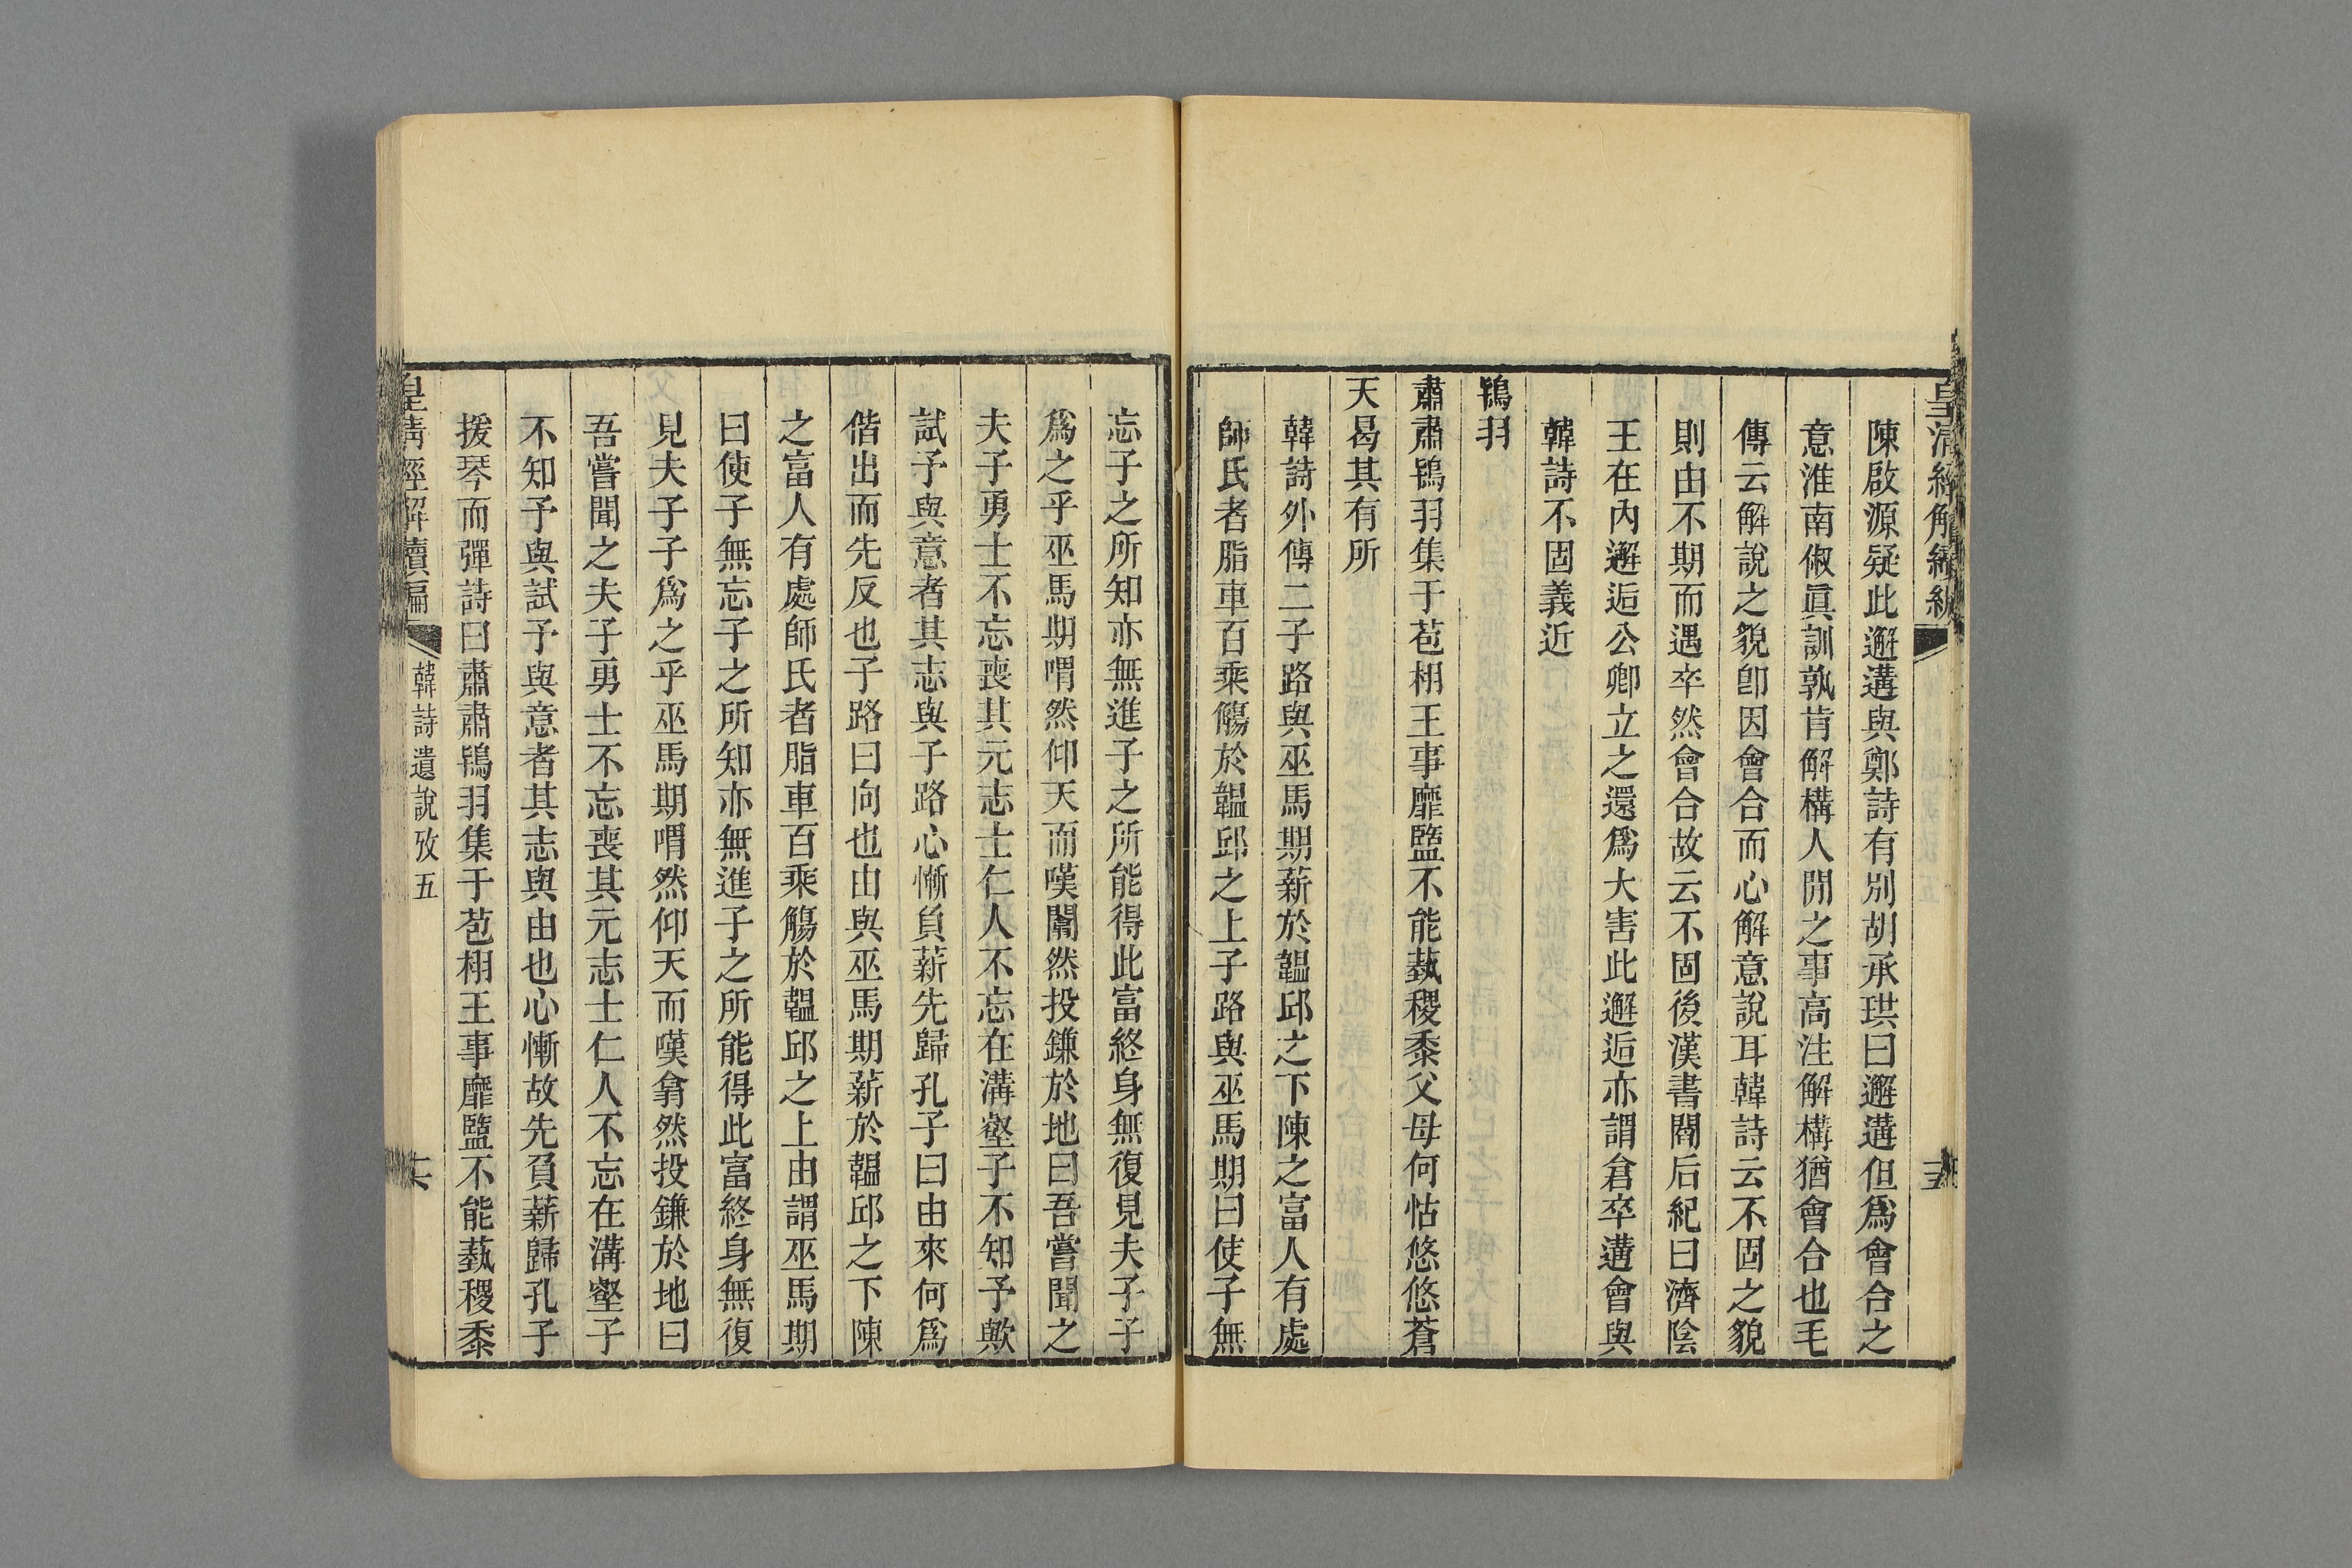 皇清經解續編
陳啟源疑此邂遘與鄭詩有別胡承珙曰邂遘但為會合之
意淮南俶眞訓孰肯解構人閒之事高注解構猶會合也毛
傳云解說之貌卽因會合而心解意說耳韓詩云不固之貌
則由不期而遇卒然會合故云不固後漢書閻后紀曰濟陰
王在內邂逅公卿立之還爲大害此邂逅亦謂倉卒遘會與
韓詩不固義近
鴇羽
肅肅鴇羽集于苞栩王事靡盬不能蓺稷黍父母何怙悠悠蒼
天曷其有所
韓詩外傳二子路與巫馬期薪於韞邱之下陳之富人有處
師氏者脂車百乘觴於韞邱之上子路與巫馬期曰使子無
忘子之所知亦無進子之所能得此富終身無復見夫子子
爲之乎巫馬期喟然仰天而嘆闟然投鎌於地曰吾嘗聞之
夫子勇士不忘喪其元志士仁人不忘在溝壑子不知予歟
試予與意者其志與子路心慚負薪先歸孔子曰由來何爲
偕出而先反也子路曰向也由與巫馬期薪於韞邱之下陳
之富人有處師氏者脂車百乘觴於韞邱之上由謂巫馬期
曰使子無忘子之所知亦無進子之所能得此富終身無復
見夫子子爲之乎巫馬期喟然仰天而嘆翕然投鎌於地曰
吾嘗聞之夫子勇士不忘喪其元志士仁人不忘在溝壑子
不知予與試予與意者其志與由也心慚故先負薪歸孔子
援琴而彈詩曰肅肅鴇羽集于苞栩王事靡盬不能蓺稷黍
皇清經解續編
韓詩遺說攷五